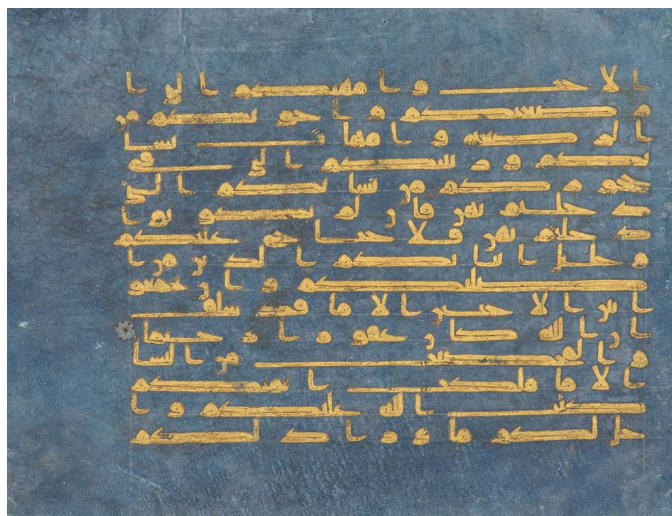 الاخت وامهتكم التي ا
رضعنكم واخوتكم من
الرضعه وامهت نسا
ئكم ورببكم التي في
حجوركم من نسائكم التي
دخلتم بهن فان لم تكونوا
دخلتم بهن فلا جناح عليكم
وحلئل ابنائكم الذين من ا
صلبكم وان تجمعو
ا بين الاختين الا ما قد سلف
ان الله كان غفورا رحيما
والمحصنت من النسا
الا ما ملكت ايمنكم
كتب الله عليكم وا
حل لكم ما ورا ذلكم